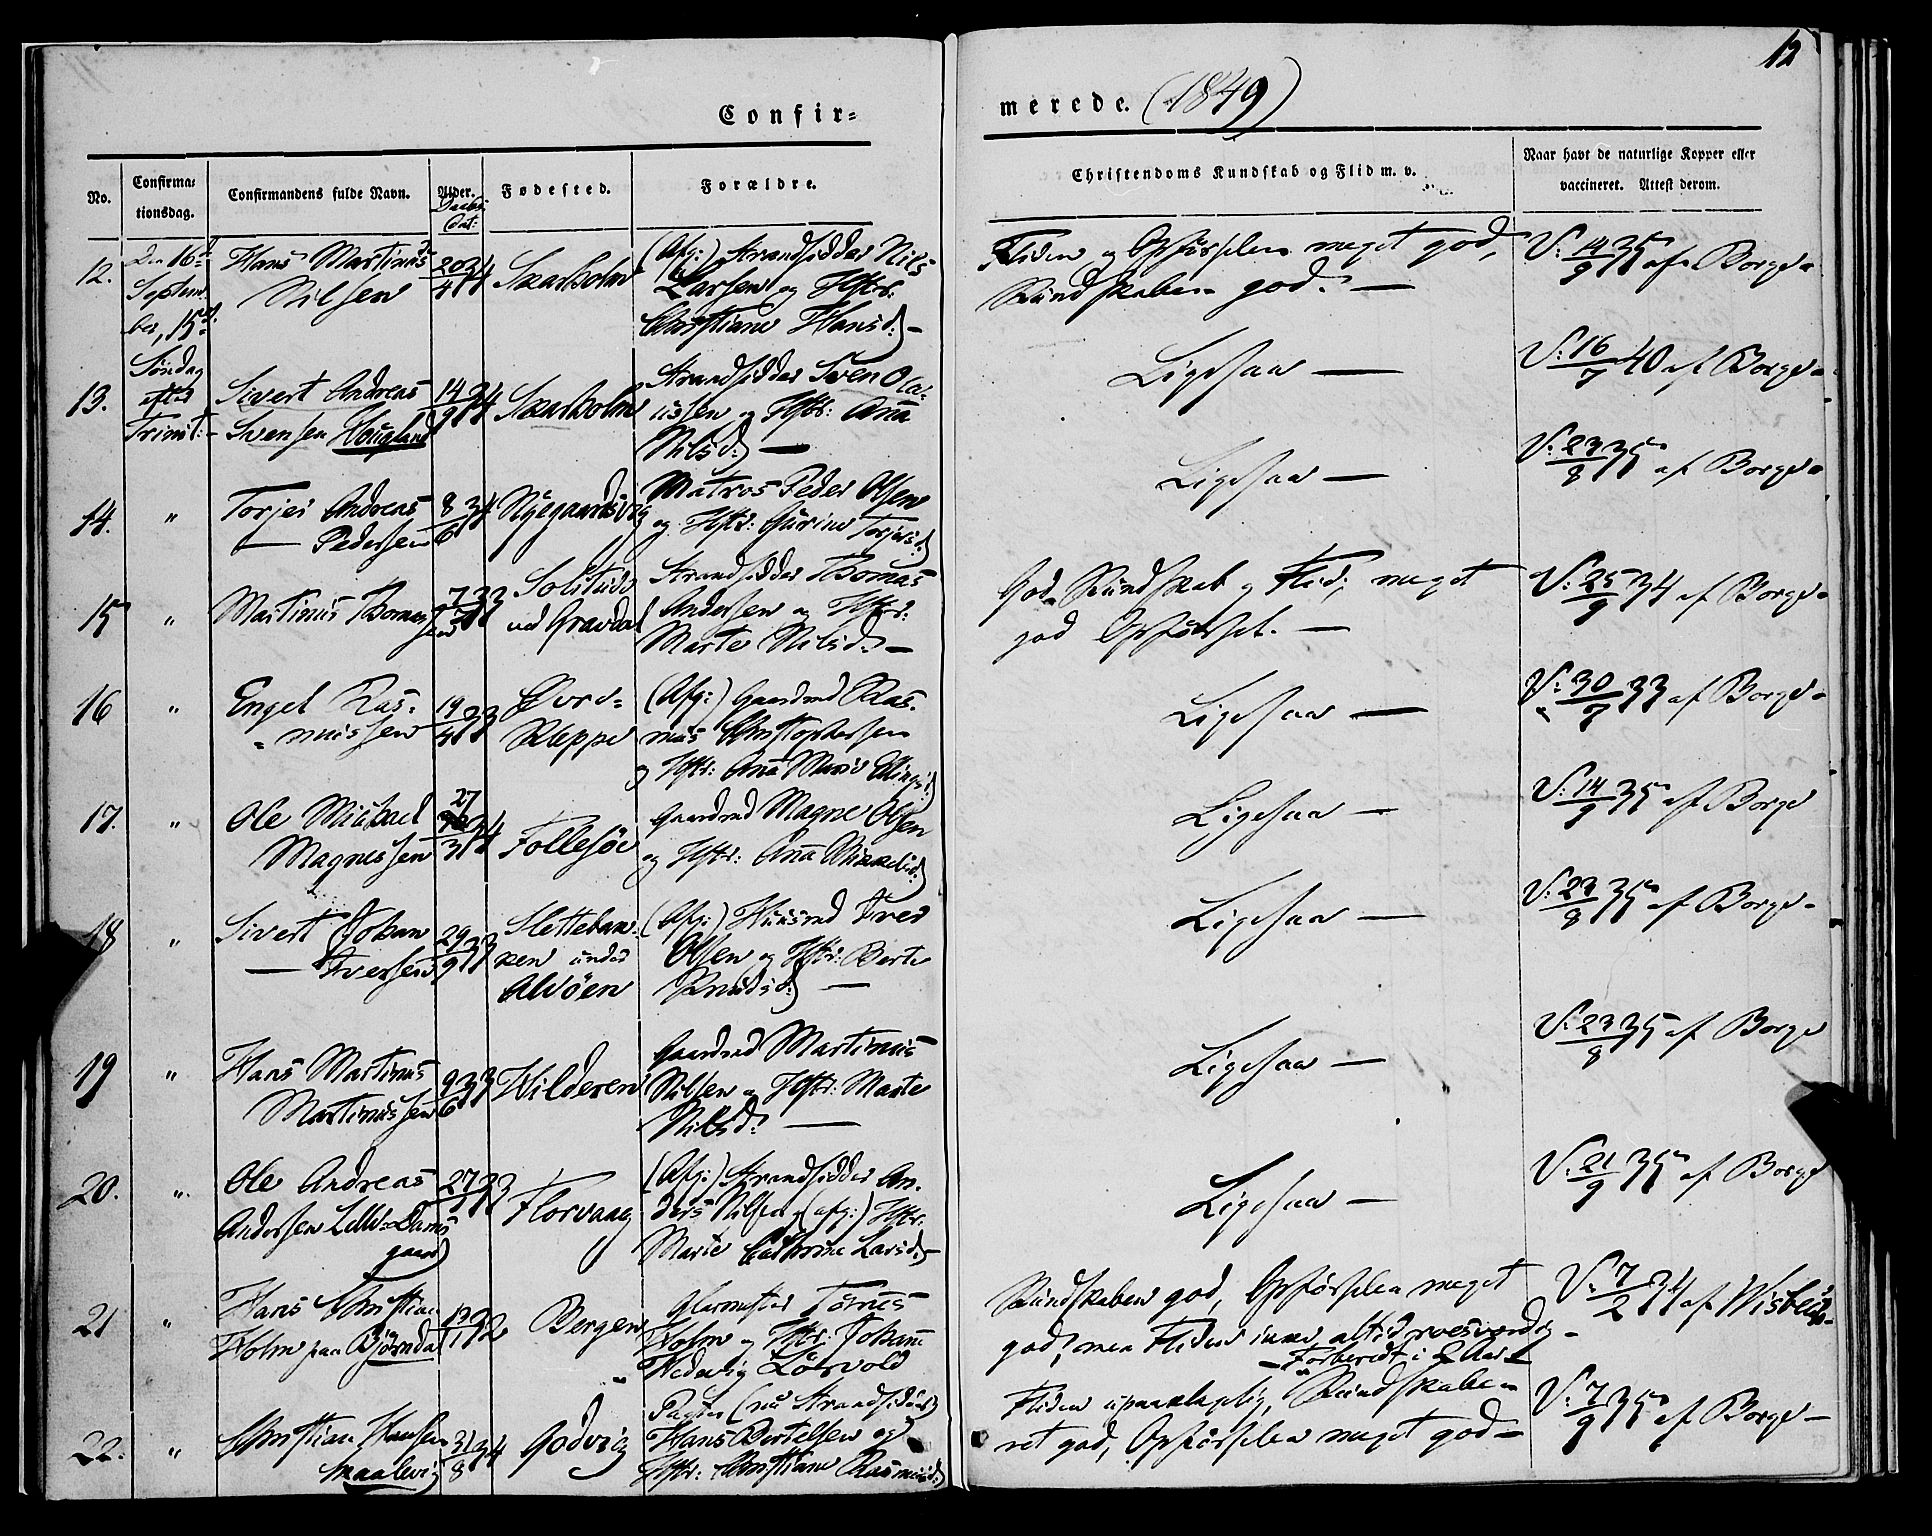 12
Confir=
merede. (1849)
No.
Confirma=
tionsdag.
Confirmandens fulde Navn.
Alder.
Daabs
dat:
Fødested.
Forældre.
Christendoms Kundskab og Flid m. v.
Naar havt de naturlige Kopper eller
vaccineret. Attest derom.
12.
Den 16de
Septem
ber, 15d.
Søndag
efter
Trinit:
Hans Martinus
Nilsen
20/4 34
Skarholm
(Afg:) Strandsidder Nils
Larsen og Hstr:
Christiane Hansd:
Fliden og Opførselen meget god,
Kundskaben god. —
V: 14/9 35 af Borge
13.
Sivert Andreas
Svensen Hougland
14/9 34
Skarholm
Strandsidder Sven Ola-
ussen og Hstr: Anna
Nilsd: —
Ligesaa —
V: 16/7 40 af Borge
14.
"
Torjer Andreas
— Pedersen
8/6 34
Nÿegaardsvig
Matros Peder Olsen
og Hstr: Gurine Torjersd:
Ligesaa —
V: 23/8 35 af Borge
15
"
Martinus Thomas
sen
7/7 33
Solitude
ved Gravdal
Strandsidder Thomas
Andersen og Hstr:
Marte Nilsd: —
God Kundskab og Flid, meget
god Opførsel. —
V: 25/9 34 af Borge
16
"
Engel Ras-
mussen
19/4 33
Øvre-
Kleppe
(Afg:) Gaardmd Ras-
mus Christophersen
og Hstr: Anna Marie Ellingsd:
Ligesaa —
V: 30/7 33 af Borge
17.
"
Ole Michael
Magnessen
27/3 34
Follesöe
Gaardmd Magne Olsen
og Hstr: Anna Mikkelsd:
Ligesaa —
V: 14/9 35 af Borge
18
"
Sivert Johan
— Iversen
29/9 33
Sletteban-
ken under
Alvöen
(Afg:) Huusmd Iver
Olsen og Hstr: Berte
Knudsd: —
Ligesaa —
V: 23/8 35 af Borge
19
"
Hans Martinus
Martinussen
9/6 33
Hilderen
Gaardmd Martinus
Nilsen og Hstr: Marte
Nilsd: —
Ligesaa —
V: 23/8 35 af Borge
20.
"
Ole Andreas
Andersen Lille-Dams
gaard
27/1 33
Florvaag
(Afg:) Strandsidder An-
ders Nilsen og (afg:) Hstr:
Marte Cathrine Larsd:
Ligesaa —
V: 21/9 35 af Borge
21
"
Hans Christian
Holm paa Björndal
13/11 32
Bergen
Glarmester Tönnes
Holm og Hstr: Johanne
Hedevig Lörvold
Kundskaben god, Opførselen meget
god, men Fliden ikke altid roesværdig
— Forberedt i 2 Aar
V: 7/2 34 af Wisbeck
22.
"
Christian Hansen
Maalevig
31/8 34
Godvig
Pagter (nu Strandsidder)
Hans Bertelsen og
Hstr: Christiane Rasmusd:
Fliden upaaklagelig, Kundskaben
ret god, Opførselen meget god —
V: 7/9 35 af Borge —